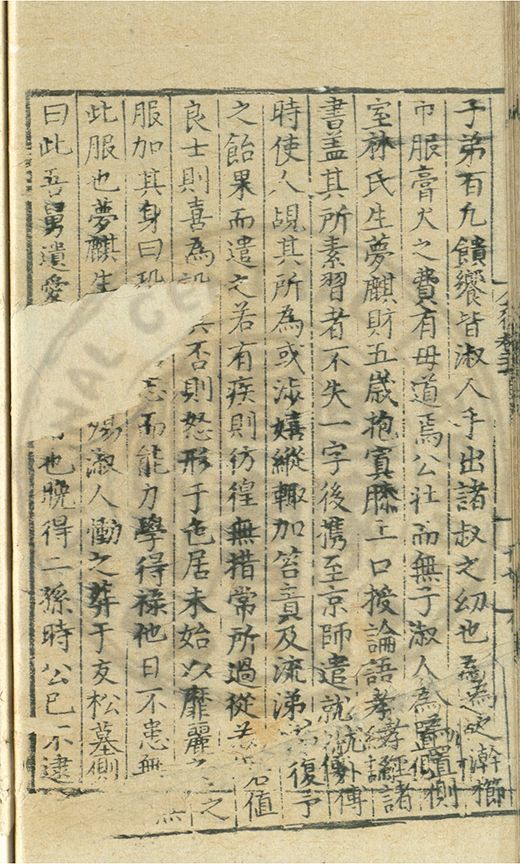 子弟百凡饋饗皆淑人手出諸叔之幼也為之澣櫛
巾服膏火之費有母道焉公壯而無子淑人為置側
室林氏生夢麒財五歲抱寘膝上口授論語孝經諸
書盖其所素習者不失一字後携至京師遣就外傅
時使人覘其所為或涉嬉縱輙加笞責及流涕復予
之飴果而遣之若有疾則彷徨無措常所過從值
良士則喜為設其否則怒形于色居未始以靡麗之
服加其身曰而能力學得祿他日不患無
此服也夢麒生殤淑人慟之葬于友松墓側
曰此吾舅遺愛也晚得二孫時公已不逮